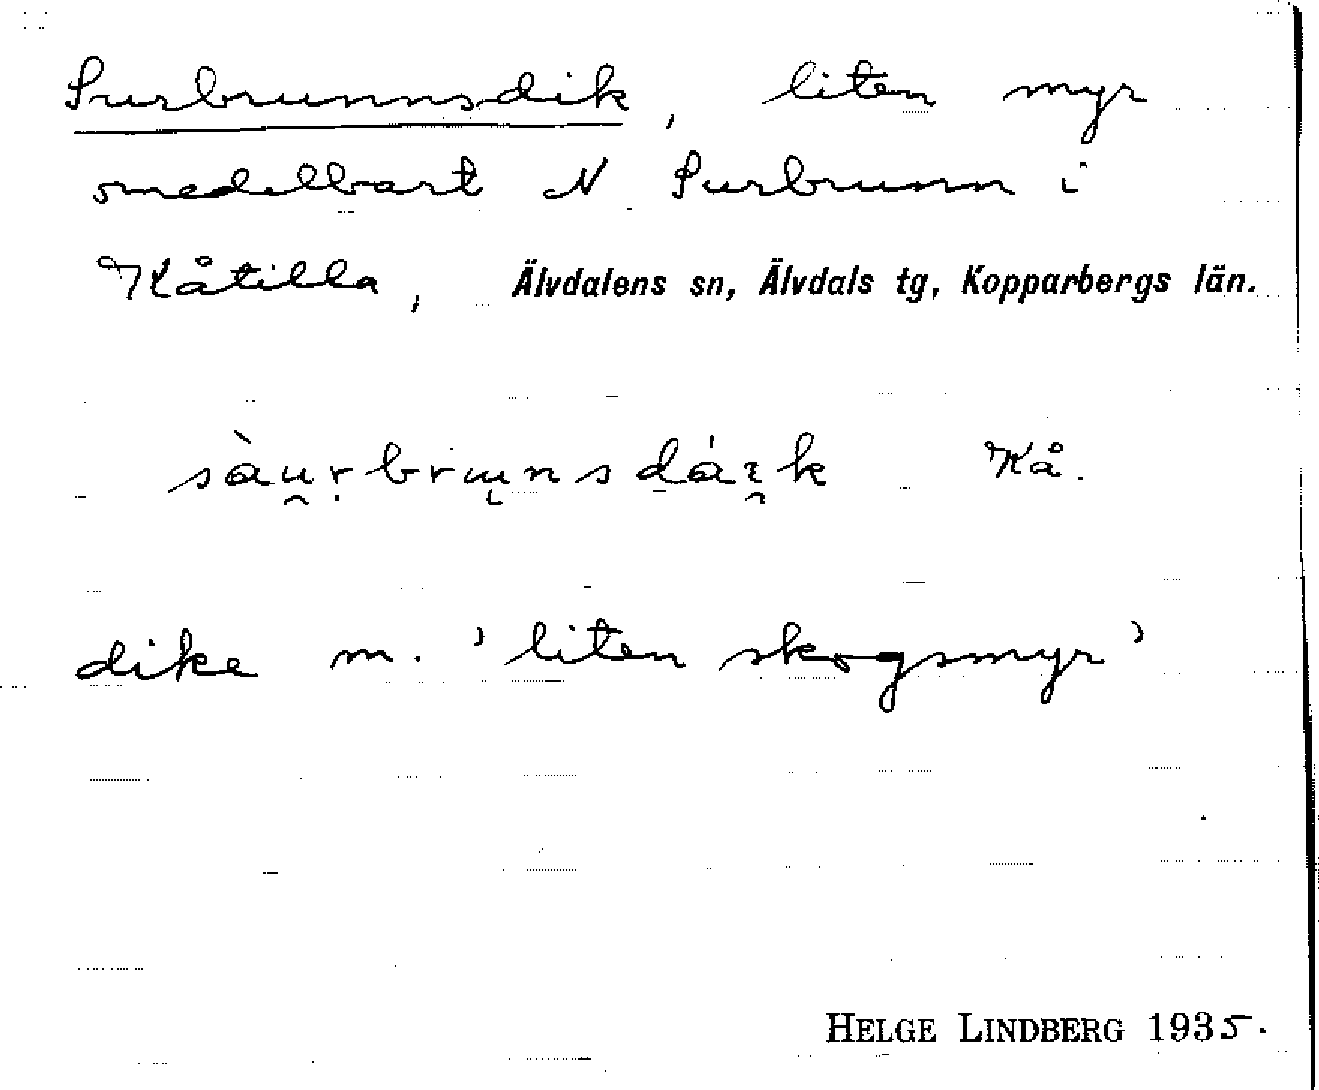 Surbrunnsdik, liten myr
omedelbart N Surbrunn i
Kåtilla, Älvdalens sn, Älvdals tg, Kopparbergs län.
sàu̯r̥brɯnsdái̯k Kå.
dike m. 'liten skogsmyr'
HELGE LINDBERG 1935.